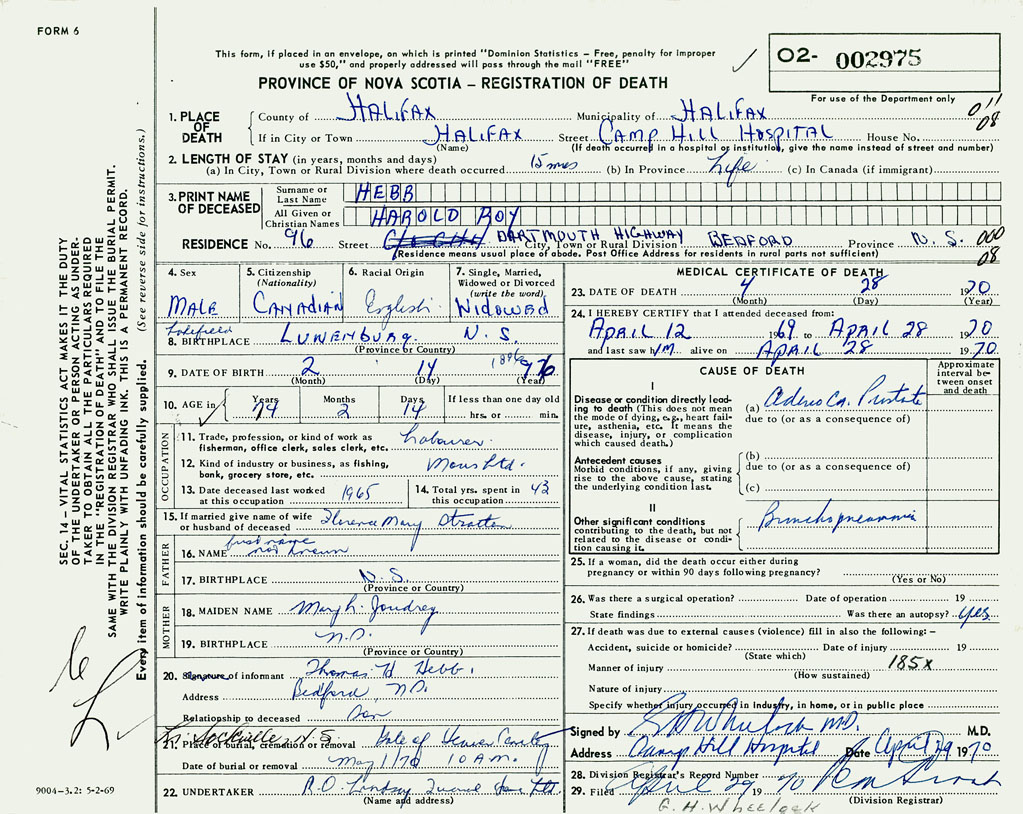 FORM 6
This form, if placed in an envelope, on which is printed "Dominion Statistics – Free, penalty for improper
use $50," and properly addressed will pass through the mail "FREE"
PROVINCE OF NOVA SCOTIA – REGISTRATION OF DEATH
O2- 002975
For use of the Department only
011
08
1. PLACE OF DEATH
County of HALIFAX Municipality of HALIFAX
If in City or Town HALIFAX Street CAMP HILL HOSPITAL House No.
(Name) (If death occurred in a hospital or institution, give the name instead of street and number)
2. LENGTH OF STAY (in years, months and days)
(a) In City, Town or Rural Division where death occurred 15 mos (b) In Province Life (c) In Canada (if immigrant)
3. PRINT NAME OF DECEASED
Surname or Last Name HEBB
All Given or Christian Names HAROLD ROY
RESIDENCE No. 96 Street DARTMOUTH HIGHWAY City, Town or Rural Division BEDFORD Province N. S. 000
08
(Residence means usual place of abode. Post Office Address for residents in rural parts not sufficient)
4. Sex
MALE
5. Citizenship (Nationality)
CANADIAN
6. Racial Origin
English
7. Single, Married, Widowed or Divorced (write the word)
WIDOWED
8. BIRTHPLACE LUNENBURG. N. S.
(Province or Country)
9. DATE OF BIRTH 2 14 1896
(Month) (Day) (Year)
10. AGE in Years 74 Months 2 Days 14
If less than one day old
hrs. or min.
OCCUPATION
11. Trade, profession, or kind of work as fisherman, office clerk, sales clerk, etc. Labourer.
12. Kind of industry or business, as fishing, bank, grocery store, etc. Ltd.
13. Date deceased last worked at this occupation 1965
14. Total yrs. spent in this occupation 43
15. If married give name of wife or husband of deceased Florence Mary Stratton
FATHER
first name
16. NAME not known
17. BIRTHPLACE N. S.
(Province or Country)
MOTHER
18. MAIDEN NAME Mary L. Joudrey
19. BIRTHPLACE N.S.
(Province or Country)
20. Signature of informant Thomas H Hebb.
Address Bedford, N.S.
Relationship to deceased Son
Lr. Sackville N. S.
21. Place of burial, cremation or removal Gate of Heaven
Date of burial or removal May 1/70 10 A.M.
22. UNDERTAKER R.O. Lindsay Funeral Ltd
(Name and address)
MEDICAL CERTIFICATE OF DEATH
23. DATE OF DEATH 4 28 1970
(Month) (Day) (Year)
24. I HEREBY CERTIFY that I attended deceased from:
APRIL 12 1969 to APRIL 28 1970
and last saw IM alive on APRIL 28 1970
CAUSE OF DEATH
Approximate interval between onset and death
I
Disease or condition directly leading to death (This does not mean the mode of dying, e.g., heart failure, asthenia, etc. It means the disease, injury, or complication which caused death.)
(a) Adeno Ca. Prostate
due to (or as a consequence of)
Antecedent causes
Morbid conditions, if any, giving rise to the above cause, stating the underlying condition last.
(b)
due to (or as a consequence of)
(c)
II
Other significant conditions
contributing to the death, but not related to the disease or condition causing it.
Bronchopneumonia
25. If a woman, did the death occur either during
pregnancy or within 90 days following pregnancy?
(Yes or No)
26. Was there a surgical operation? Date of operation 19
State findings Was there an autopsy? Yes
27. If death was due to external causes (violence) fill in also the following: –
Accident, suicide or homicide? Date of injury 19
(State which)
Manner of injury 185x
(How sustained)
Nature of injury
Specify whether injury occurred in industry, in home, or in public place
Signed by M.D. M.D.
Address Camp Hill Hospital Date April 29 1970
28. Division Registrar's Record Number
29. Filed April 29 1970
(Division Registrar)
G. H. Wheelock
SEC. 14 – VITAL STATISTICS ACT MAKES IT THE DUTY
OF THE UNDERTAKER OR PERSON ACTING AS UNDER-
TAKER TO OBTAIN ALL THE PARTICULARS REQUIRED
IN THE "REGISTRATION OF DEATH" AND TO FILE THE
SAME WITH THE DIVISION REGISTRAR WHO SHALL ISSUE THE BURIAL PERMIT.
WRITE PLAINLY WITH UNFADING INK. THIS IS A PERMANENT RECORD.
Every item of information should be carefully supplied. (See reverse side for instructions.)
9004-3.2: 5-2-69